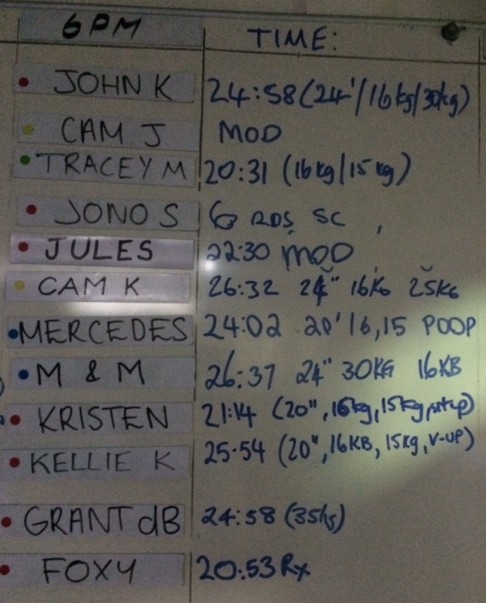 6PM TIME:
JOHN K 24:58 (24"/16kg/30kg)
CAM J MOD
TRACEY M 20:31 (16kg/15kg)
JONO S 6 RDS SC
JULES 22:30 MOD
CAM K 26:32 24" 16KG 25KG
MERCEDES 24:02 20' 16,15 POOP
M & M 26:37 24" 30KG 16KB
KRISTEN 21:14 (20", 16kg, 15kg,
KELLIE K 25.54 (20", 16KB, 15kg, V-UP)
GRANT dB 24:58 (35kg)
FOXY 20:53 Rx